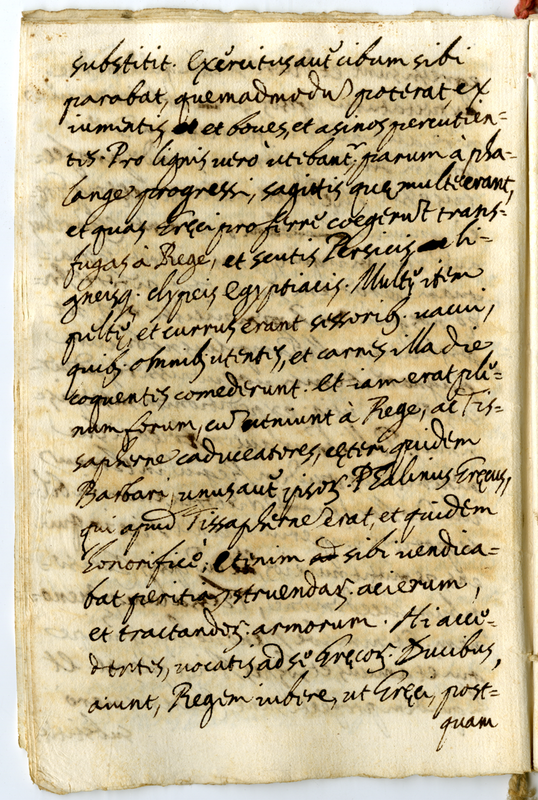 substitit. Exercitus aut̃ cibum sibi
parabat, quemadmodũ poterat, ex
iumentis et boues, et asinos percutien-
tis. Pro lignis verò utibant.r parum à pha-
lange progressi, sagittis quę multę erant,
et quas Gręci proferre coegerũt trans-
fugas à Rege, et scutis Persicis li-
gneisq. clypeis Egyptiacis. Multę item
peltę, et currus erant sessorib. vacui,
quib. omnib. utentes, et carnes illa die
coquentis comederunt. Et iam erat ple-
num forum, cũ veniunt à Rege, ac Tis-
sapherne caduceatores, cęteri quidem
Barbari, unus aut̃ ipsoꝝ Phalinus Gręcus,
qui apud Tissapherne erat, et quidem
honorificè; etenim sibi vendica-
bat peritia struendaꝝ acierum,
et tractandoꝝ armorum. Hi acce-
dentes, vocatis ad se Gręcoꝝ Ducibus,
aiunt, Regem iubere, ut Gręci, post-
quam